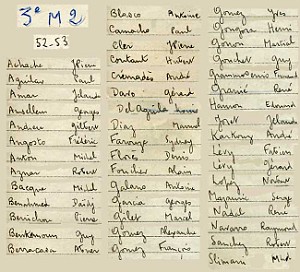 3e M2
52-53
Aguilar Paul
Amar Yolande
Ansellem Georges
Andrieu Gilbert
Angosto Frédéric
Anton Michel
Aznar Robert
Bacque Michel
Benhamed Daïdj
Berichon Pierre
Benkemoun Guy
Berracasa Albert
Blasco Antoine
Camacho Paul
Cler Pierre
Coutant Hubert
Crémadès André
Davo Gérard
Del Aguila Louis
Diaz Manuel
Farouze Sydney
Florès Denis
Forichon Alain
Galano Antoine
Garcia Georges
Gilet Marcel
Gomez Alexandre
Gomez François
Gomez Yves
Gongora Henri
Gonon Martial
Guy
Grammaccini Fernand
Granié René
Hanron Edmond
Yvet Yolande
Karkouny André
Lévy Fabien
Lévy Gérard
Lopez Norbert
Serge
Nadal René
Navarro Raymond
Sanchez Robert
Slimani